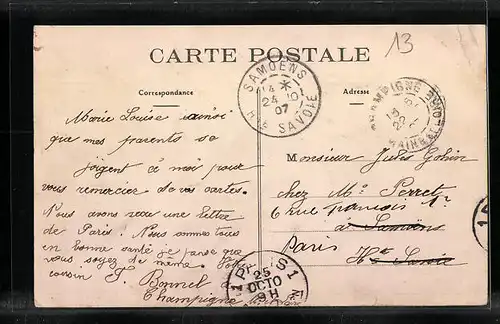 13
CARTE POSTALE
Correspondance
Adresse
SAMOENS
24 10
07
HTE SAVOIE
Marie Louise ainsi
que mes parents se
joignent à moi pour
vous remercier de vos cartes.
Nous avons reçu une lettre
de Paris. Nous sommes tous
en bonne santé je pense que
vous soyez de même. Votre
cousin J. Bonnel
Champigné
Monsieur Jules
chez Mr Perret
6 rue François 1r
à Samoëns
Paris
Hte Savoie
PARIS 1
25
OCTO
9H
CHAMPIGNÉ
MAINE-ET-LOIRE